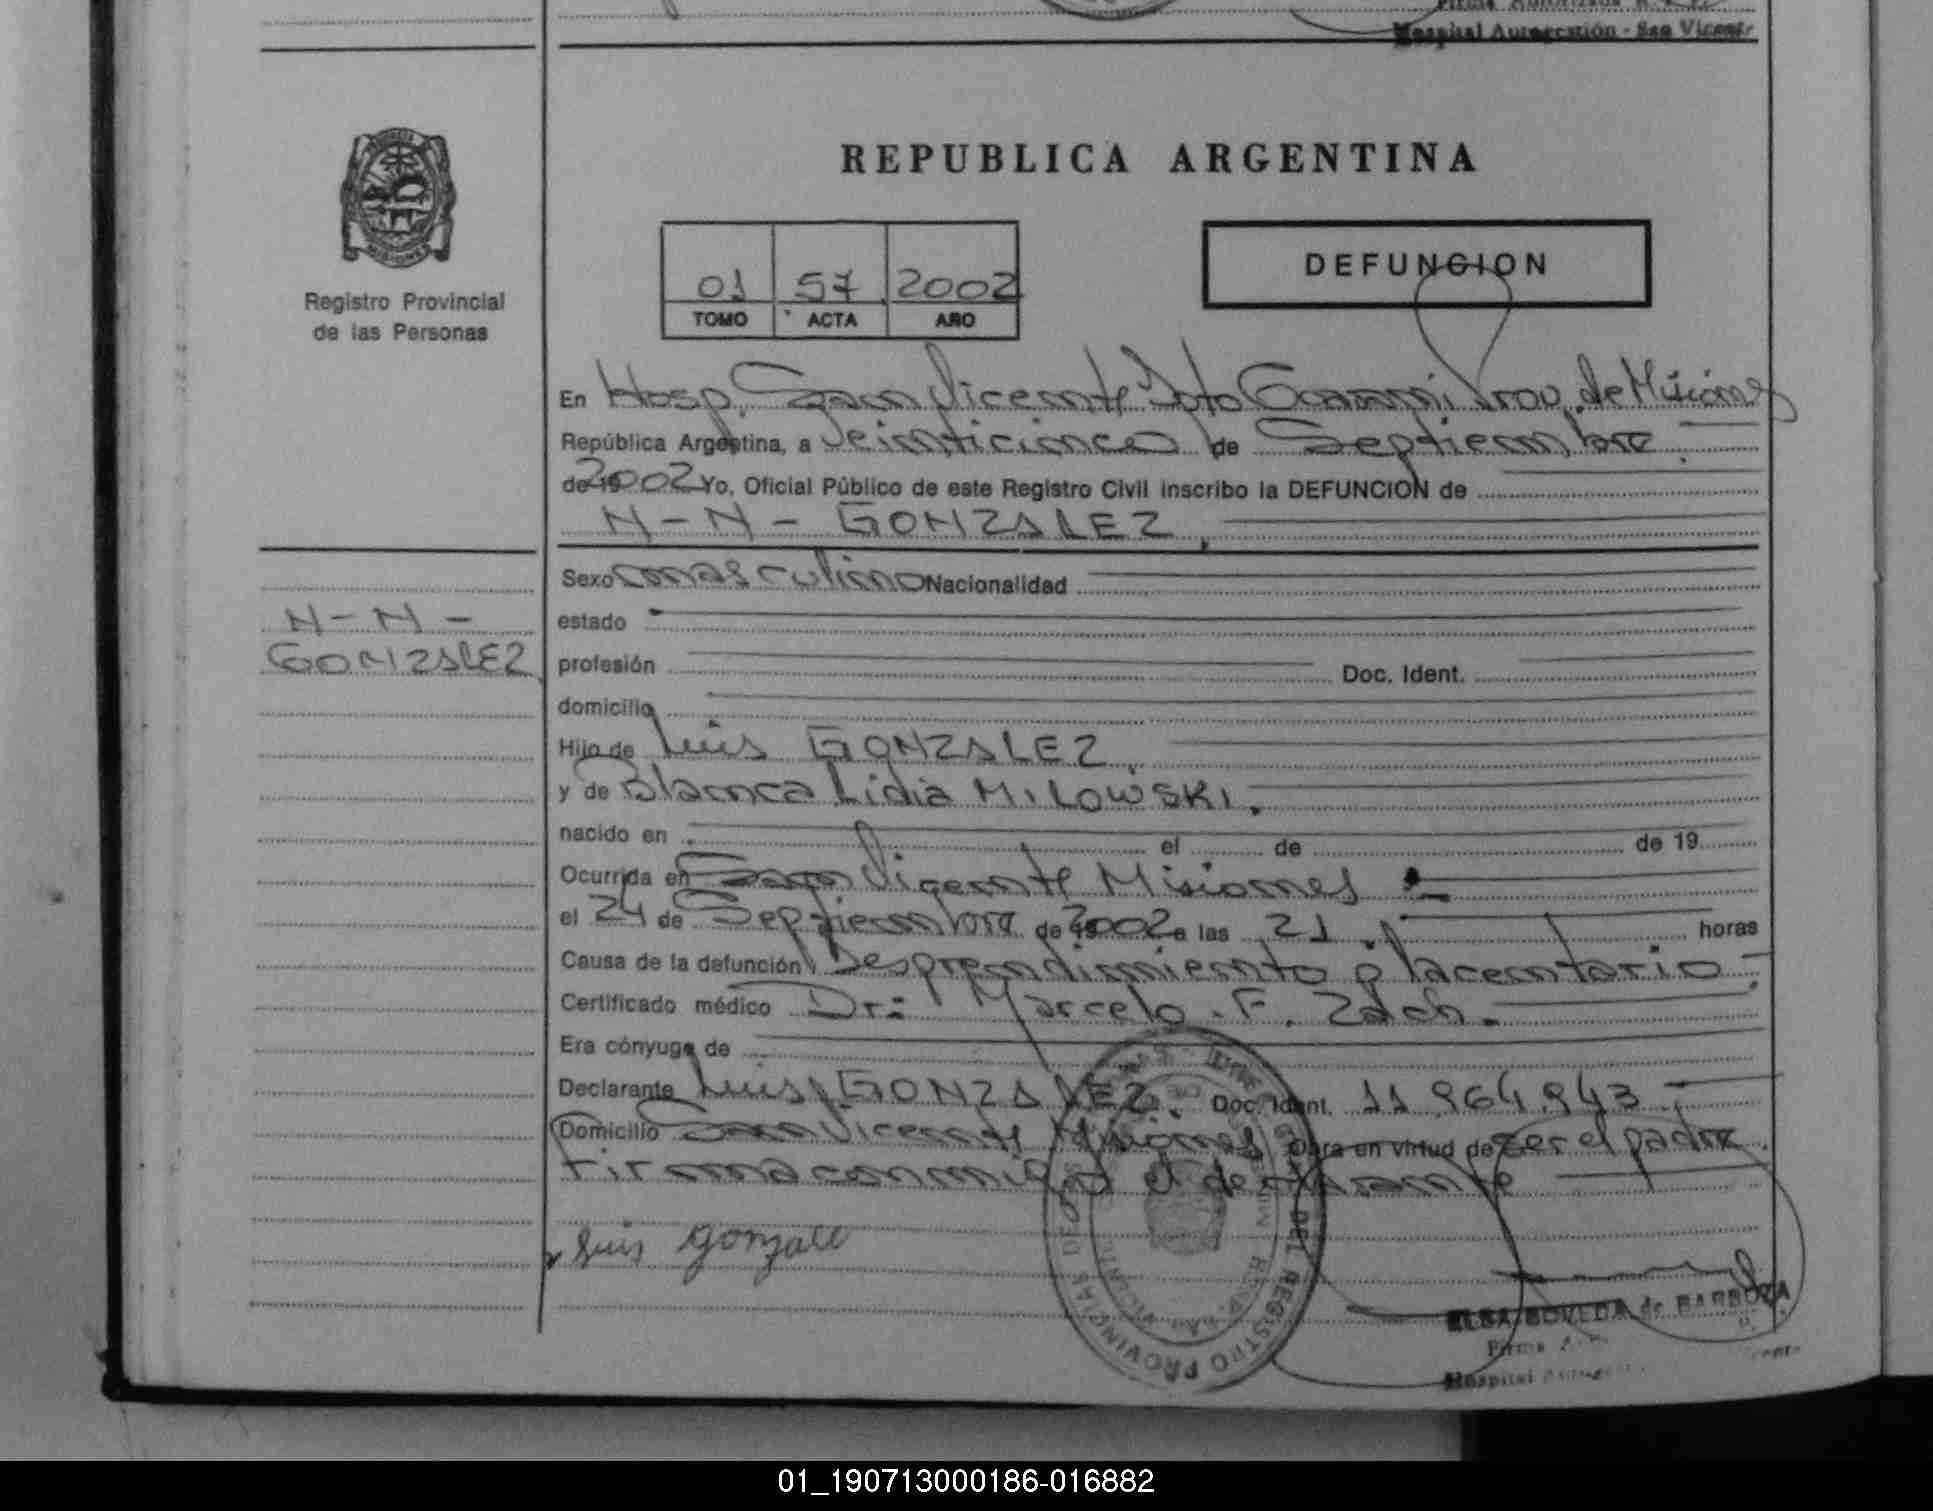 Hospital Autogestión - San Vicente
REPUBLICA ARGENTINA
DEFUNCION
01 57 2002
TOMO ACTA AÑO
Registro Provincial
de las Personas
En Hosp. San Vicente Dpto Guaraní Prov. de Misiones
República Argentina, a Veinticinco de Septiembre
de 19 2002 Yo, Oficial Público de este Registro Civil inscribo la DEFUNCION de
N-N- GONZALEZ.
N-N-
GONZALEZ
Sexo masculino Nacionalidad
estado
profesión Doc. Ident.
domicilio
Hijo de Luis GONZALEZ.
y de Blanca Lidia MILOWSKI.
nacido en el de de 19
Ocurrida en San Vicente Misiones.-
el 24 de Septiembre de 19 2002 a las 21. horas
Causa de la defunción Desprendimiento placentario.-
Certificado médico Dr: Marcelo. F. Zach.
Era cónyuge de
Declarante Luis GONZALEZ. Doc. Ident. 11.964.943.-
Domicilio San Vicente Misiones Obra en virtud de ser el padre.
Firma conmigo el declarante
Luis Gonzale
ELSA BOVEDA de BARBOZA
Firma
Hospital
REGISTRO PROVINCIAL DE LAS
01_190713000186-016882